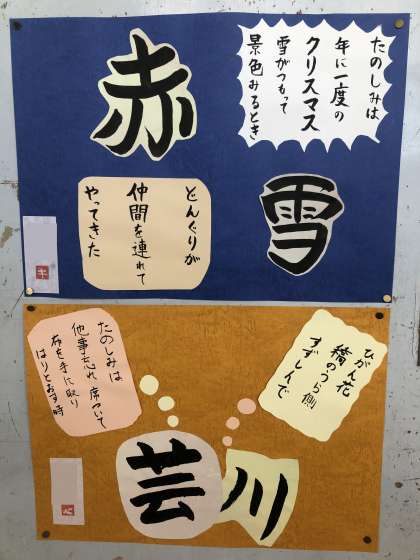 たのしみは
年に一度の
クリスマス
雪がつもって
景色みるとき
赤
雪
どんぐりが
仲間を連れて
やってきた
ひがん花
橋のうら側
すずしんで
たのしみは
他事を忘れ 席ついて
布を手に取り
はりとおす時
川
芸